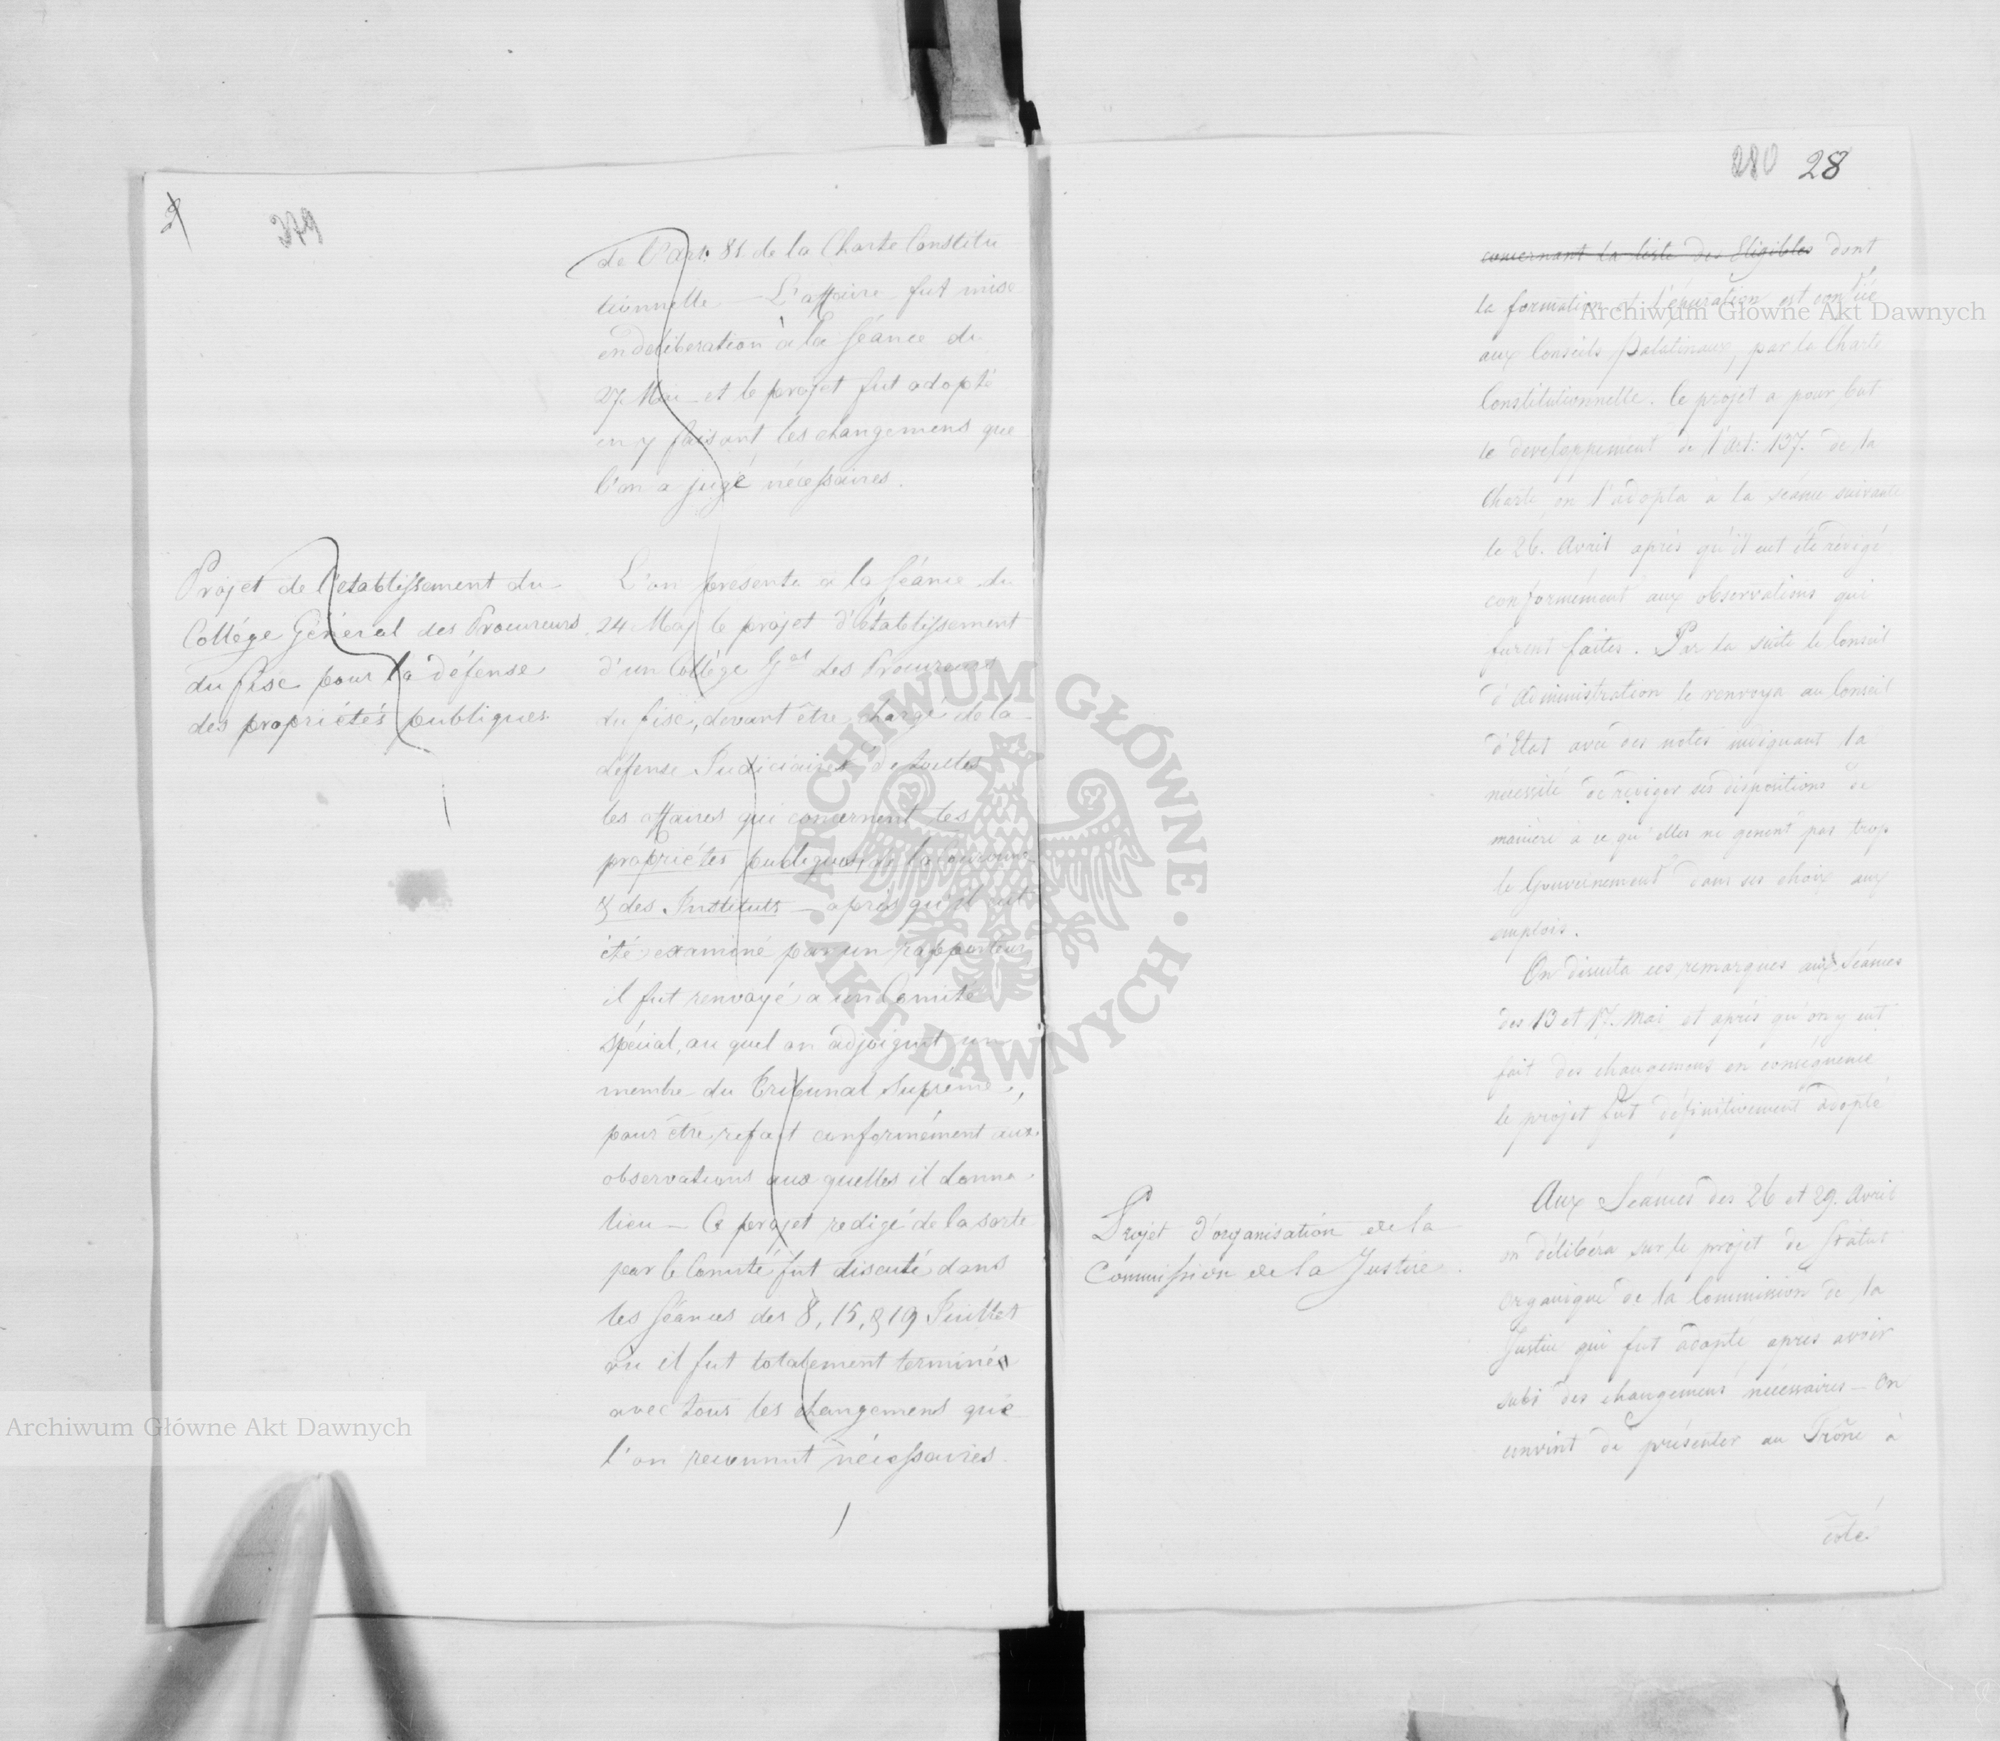 279
de l'Art. 81 de la Charte Constitu
tionnelle — L'affaire fut mise
en délibération à la Séance du
27 Mai et le projet fut adopté
en y faisant les changemens que
l'on a jugé nécessaires.
Projet de l'établissement du
Collége Général des Procureurs
du fisc pour la défense
des propriétés publiques.
L'on présenta à la Séance du
24 Maj le projet d'établissement
d'un Collége Gal des Procureurs
du fisc, devant être chargé de la
défense Judiciaire de toutes
les affaires qui concernent les
propriétés publiques, de la Couronne
& des Instituts — après qu'il eut
été examiné par un rapporteur
il fut renvoyé a un Comité
spécial, au quel on adjoignit un
membre du Tribunal Suprême,
pour être refait conformément aux
observations aux quelles il donna
lieu — Ce projet redigé de la sorte
par le Comité fut discuté dans
les Séances des 8, 15, & 19 Juillet
où il fut totalement terminé
avec tous les changemens que
l'on reconnut nécessaires.
280 28
concernant la liste des Eligibles dont
la formation et l'épuration est confiée
aux Conseils Palatinaux, par la Charte
Constitutionnelle. Ce projet a pour but
le developpement de l'Art: 137. de la
Charte, on l'adopta à la séance suivante
le 26. Avril après qu'il eut été rédigé
conformément aux observations qui
furent faites. Par la suite le Conseil
d'Administration le renvoya au Conseil
d'Etat avec des notes indiquant la
necessité de rédiger ses dispositions de
manière à ce qu'elles ne genent pas trop
le Gouvernement dans ses choix aux
emplois.
On discuta ces remarques aux Séances
des 13 et 17. Mai et après qu'on y eut
fait des changemens en conséquence
le projet fut définitivement adopté
Projet d'organisation de la
Commission de la Justice.
Aux Séances des 26 et 29. Avril
on délibéra sur le projet de Statut
Organique de la Commission de la
Justice qui fut adopté après avoir
subi des changemens nécessaires — On
convint de présenter au Trône à
côté
Archiwum Główne Akt Dawnych
Archiwum Główne Akt Dawnych
ARCHIWUM GŁÓWNE · AKT DAWNYCH ·